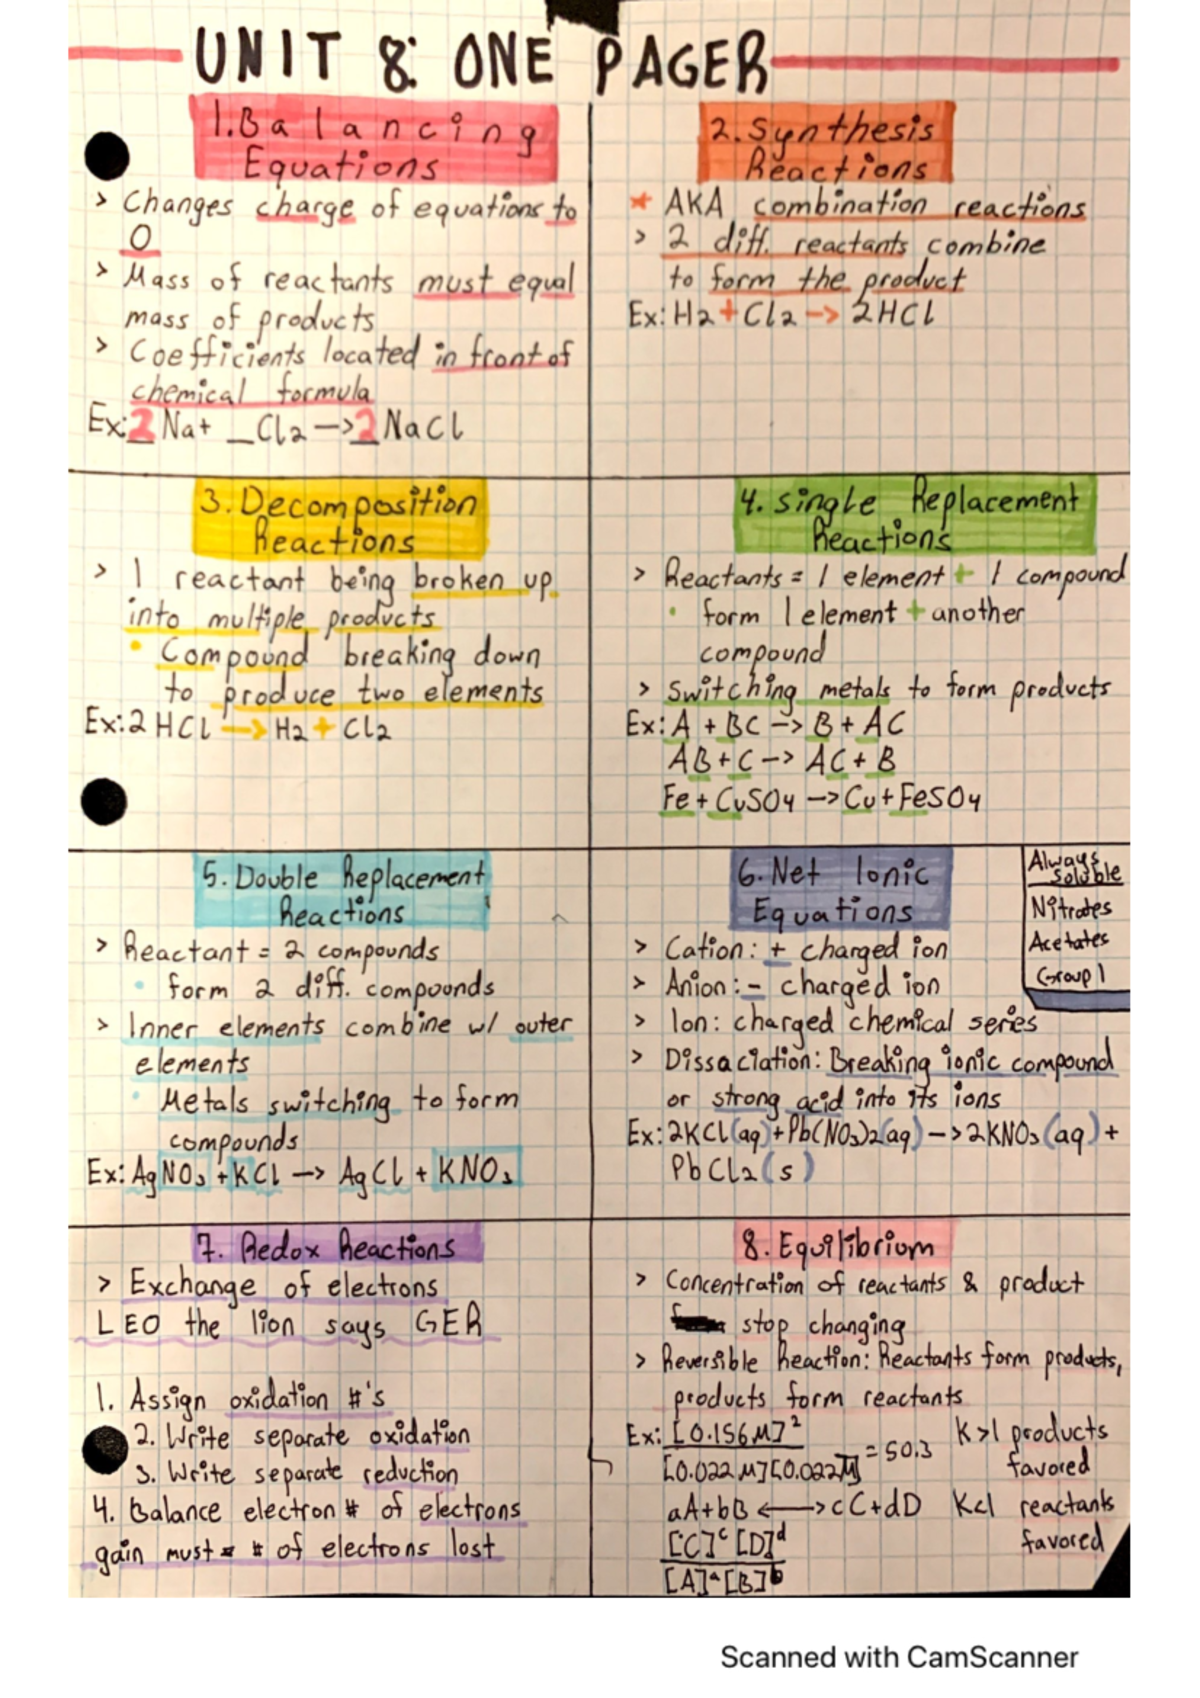 UNIT 8: ONE PAGER
1. Balancing
Equations
> Changes charge of equations to
0
> Mass of reactants must equal
mass of products
> Coefficients located in front of
chemical formula
Ex: 2 Na + _Cl2 -> 2 NaCl
2. Synthesis
Reactions
* AKA combination reactions
> 2 diff. reactants combine
to form the product
Ex: H2 + Cl2 -> 2HCl
3. Decomposition
Reactions
> 1 reactant being broken up
into multiple products
• Compound breaking down
to produce two elements
Ex: 2 HCl -> H2 + Cl2
4. Single Replacement
Reactions
> Reactants = 1 element + 1 compound
• form 1 element + another
compound
> Switching metals to form products
Ex: A + BC -> B + AC
AB + C -> AC + B
Fe + CuSO4 -> Cu + FeSO4
5. Double Replacement
Reactions
> Reactant = 2 compounds
• form 2 diff. compounds
> Inner elements combine w/ outer
elements
• Metals switching to form
compounds
Ex: AgNO3 + KCl -> AgCl + KNO3
6. Net Ionic
Equations
Always
soluble
Nitrates
Acetates
Group 1
> Cation: + charged ion
> Anion: - charged ion
> Ion: charged chemical series
> Dissaciation: Breaking ionic compound
or strong acid into its ions
Ex: 2KCl(aq) + Pb(NO3)2(aq) -> 2KNO3(aq) +
PbCl2(s)
7. Redox Reactions
> Exchange of electrons
LEO the lion says GER
1. Assign oxidation #'s
2. Write separate oxidation
3. Write separate reduction
4. Balance electron # of electrons
gain must = # of electrons lost
8. Equilibrium
> Concentration of reactants & product
stop changing
> Reversible Reaction: Reactants form products,
products form reactants
Ex: [0.156M]²
[0.022M][0.022M] = 50.3
K>1 products
favored
aA+bB <-> cC+dD
K<1 reactants
favored
[C]ᶜ[D]ᵈ
[A]ᵃ[B]ᵇ
Scanned with CamScanner